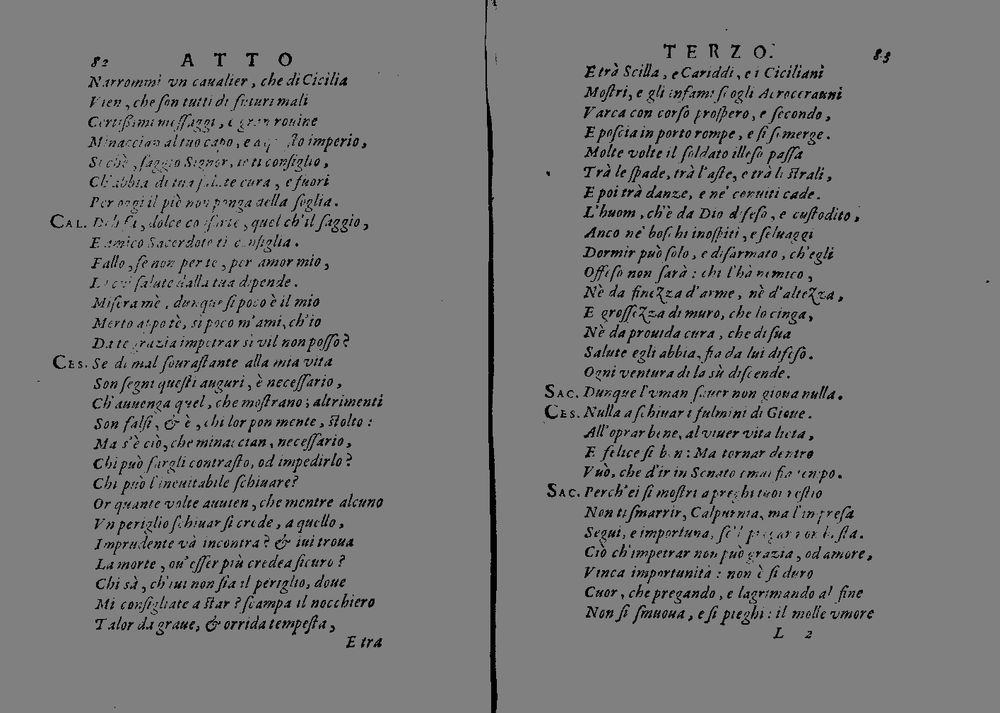 82 ATTO
Narrommi vn caualier, che di Cicilia
Vien, che son tutti di futuri mali
Certissimi messaggi, e gran rouine
Minaccian al tuo capo, e a questo imperio,
Si chè, saggio Signor, io ti consiglio,
Ch'abbia di tua salute cura, e fuori
Per oggi il piè non ponga della soglia.
CAL. Deh fà, dolce consorte, quel ch'il saggio,
E amico Sacerdote ti consiglia.
Fallo, se non per te, per amor mio,
La cui salute dalla tua dipende.
Misera mè, dunque sì poco è il mio
Merto appo tè, sì poco m'ami, ch'io
Da te grazia impetrar sì vil non posso?
CES. Se di mal sourastante alla mia vita
Son segni questi auguri, è necessario,
Ch'auuenga quel, che mostrano; altrimenti
Son falsi, & è, chi lor pon mente, stolto:
Ma s'è ciò, che minaccian, necessario,
Chi può fargli contrasto, od impedirlo?
Chi può l'ineuitabile schiuare?
Or quante volte auuien, che mentre alcuno
Vn periglio schiuar si crede, a quello,
Imprudente và incontra? & iui troua
La morte, ou'esser più credea sicuro?
Chi sà, ch'iui non sia il periglio, doue
Mi consigliate a star? scampa il nocchiero
Talor da graue, & orrida tempesta,
E tra
TERZO. 83
E trà Scilla, e Cariddi, e i Ciciliani
Mostri, e gli infami scogli Acrocerauni
Varca con corso prospero, e secondo,
E poscia in porto rompe, e si somerge.
Molte volte il soldato illeso passa
Trà le spade, trà l'aste, e trà li strali,
E poi trà danze, e ne' conuiti cade.
L'huom, ch'è da Dio difeso, e custodito,
Anco ne' boschi inospiti, e seluaggi
Dormir può solo, e disarmato, ch'egli
Offeso non sarà: chi l'hà nemico,
Nè da finezza d'arme, nè d'altezza,
E grossezza di muro, che lo cinga,
Nè da prouida cura, che di sua
Salute egli abbia, fia da lui difeso.
Ogni ventura di la sù discende.
SAC. Dunque l'vman sauer non gioua nulla.
CES. Nulla a schiuar i fulmini di Gioue.
All'oprar bene, al viuer vita lieta,
E felice sì ben: Ma tornar dentro
Vuò, che d'ir in Senato omai fia tempo.
SAC. Perch'ei si mostri a preghi tuoi restio
Non ti smarrir, Calpurnia, ma l'impresa
Segui, e importuna, se'l pregar non basta.
Ciò ch'impetrar non può grazia, od amore,
Vinca importunità: non è sì duro
Cuor, che pregando, e lagrimando al fine
Non si smuoua, e si pieghi: il molle vmore
L 2